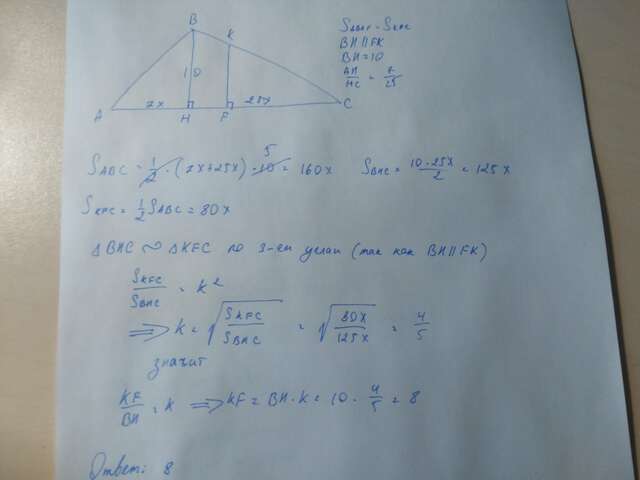 B
K
10
A
7x
H
F
25x
C
S_ABKF = S_KFC
BH || FK
BH = 10
AH/HC = 7/25
S_ABC = 1/2 · (7x+25x) · 10 = 160x
5
S_BHC = 10·25x/2 = 125x
S_KFC = 1/2 S_ABC = 80x
△BHC ∾ △KFC по 3-ем углам (так как BH || FK)
S_KFC/S_BHC = k²
⟹ k = √(S_KFC/S_BHC) = √(80x/125x) = 4/5
значит
KF/BH = k ⟹ KF = BH·k = 10 · 4/5 = 8
Ответ: 8